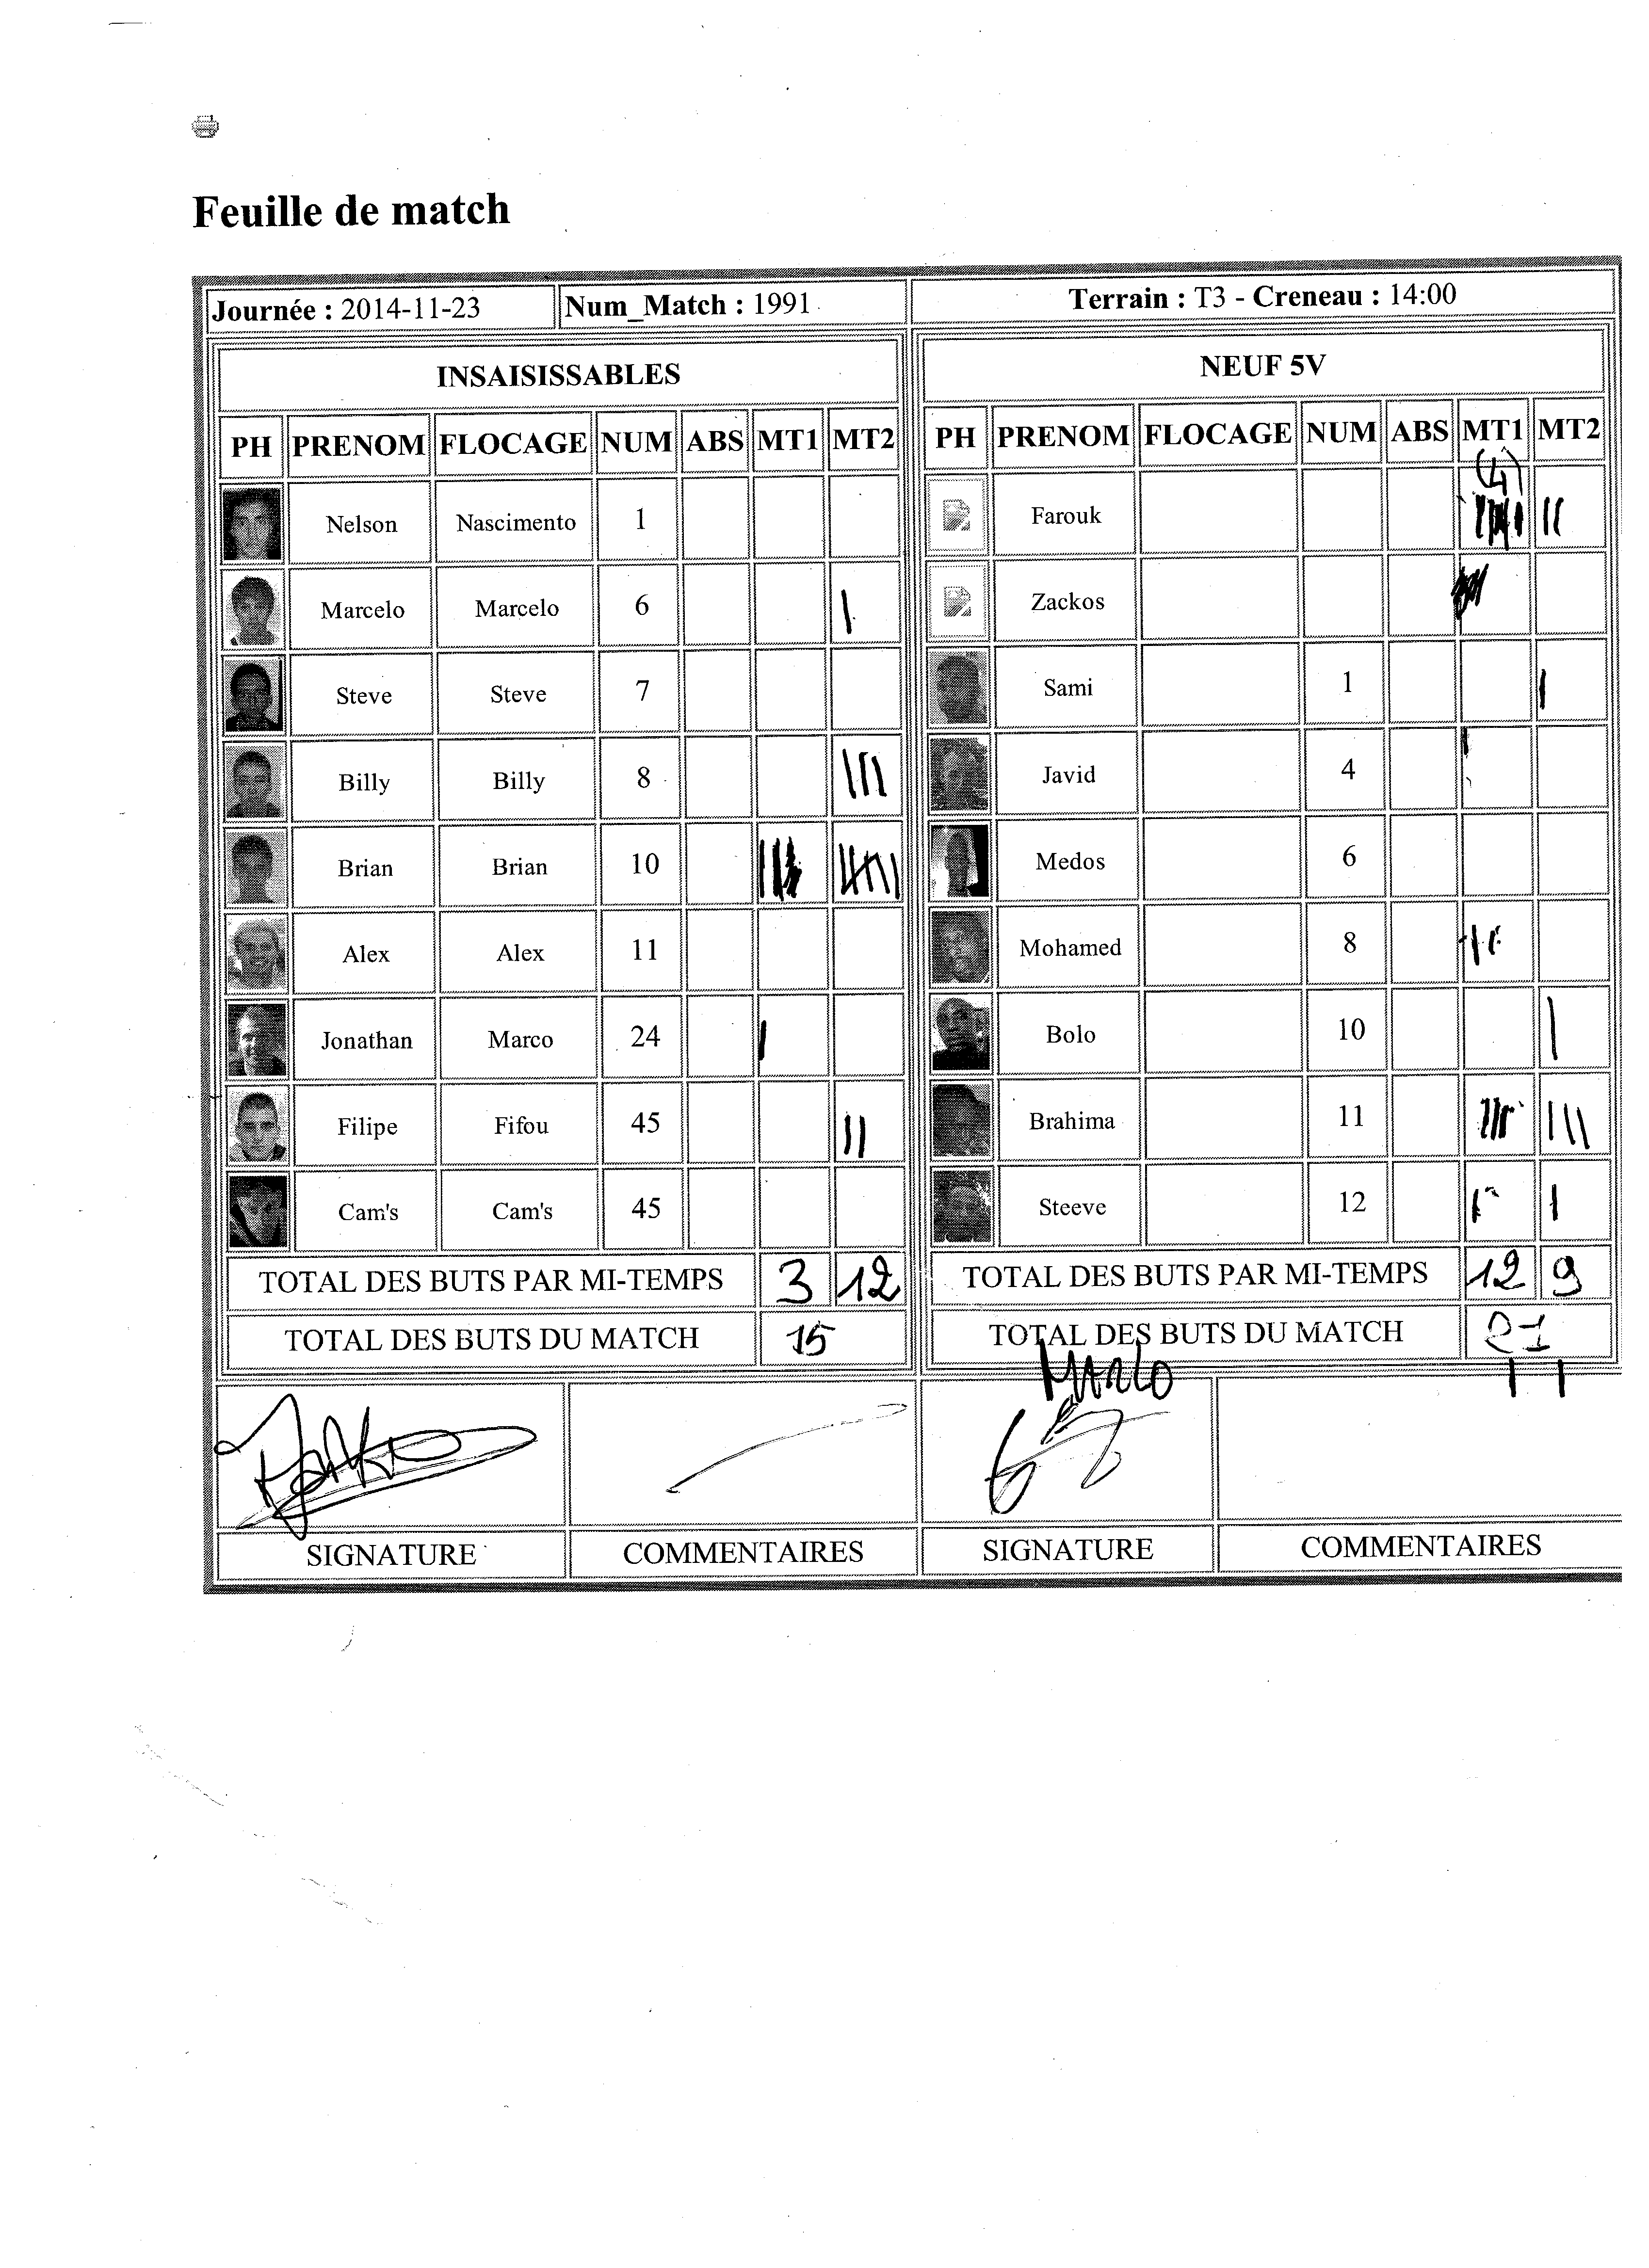 Feuille de match
Journée : 2014-11-23 Num_Match : 1991 Terrain : T3 - Creneau : 14:00
INSAISISSABLES
PH PRENOM FLOCAGE NUM ABS MT1 MT2
Nelson Nascimento 1
Marcelo Marcelo 6
Steve Steve 7
Billy Billy 8
Brian Brian 10
Alex Alex 11
Jonathan Marco 24
Filipe Fifou 45
Cam's Cam's 45
TOTAL DES BUTS PAR MI-TEMPS 3 12
TOTAL DES BUTS DU MATCH 15
SIGNATURE COMMENTAIRES
NEUF 5V
PH PRENOM FLOCAGE NUM ABS MT1 MT2
(4)
Farouk
Zackos
Sami 1
Javid 4
Medos 6
Mohamed 8
Bolo 10
Brahima 11
Steeve 12
TOTAL DES BUTS PAR MI-TEMPS 12 9
TOTAL DES BUTS DU MATCH 21
SIGNATURE COMMENTAIRES